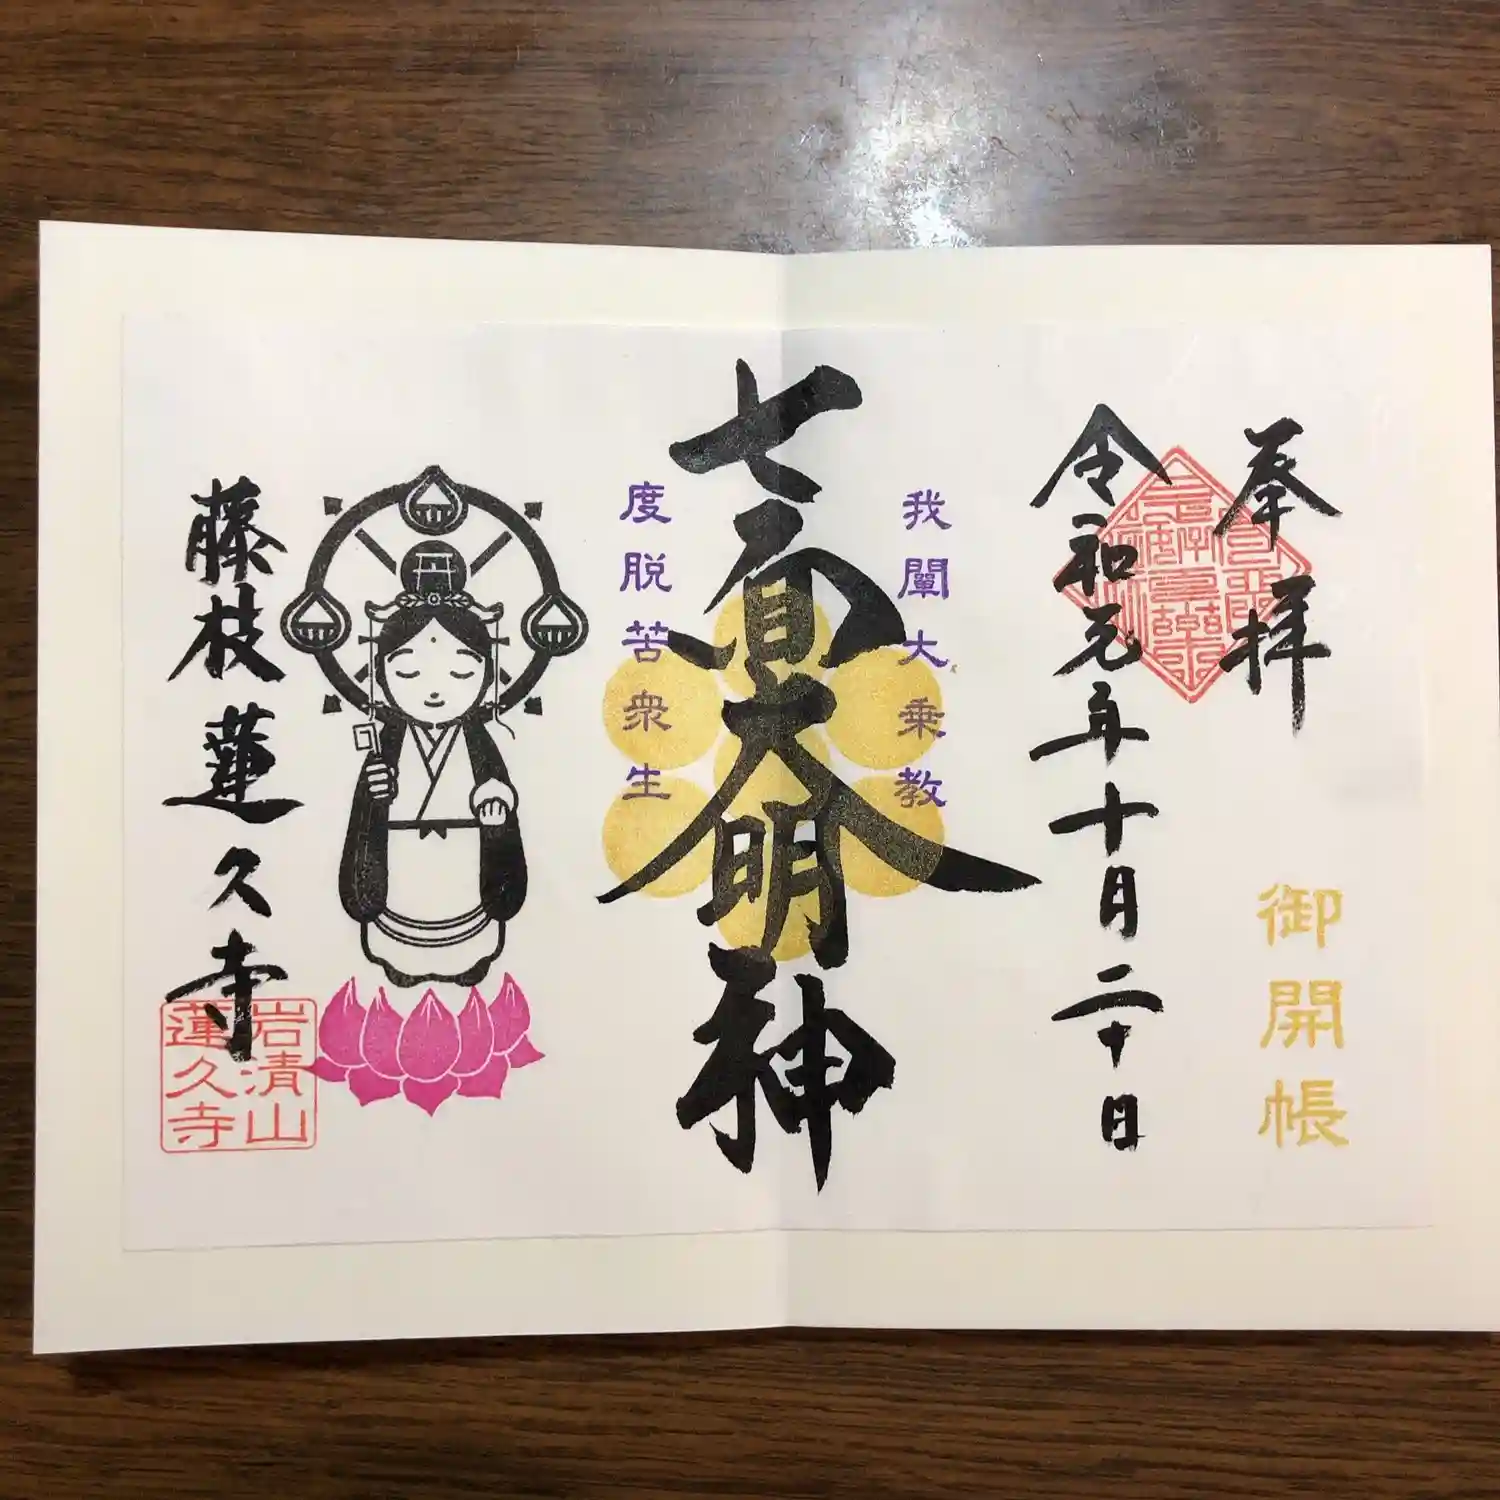 奉拝
御開帳
令和元年十月二十日
我闡大乗教
七面大明神
度脱苦衆生
藤枝蓮久寺
岩清山
蓮久寺